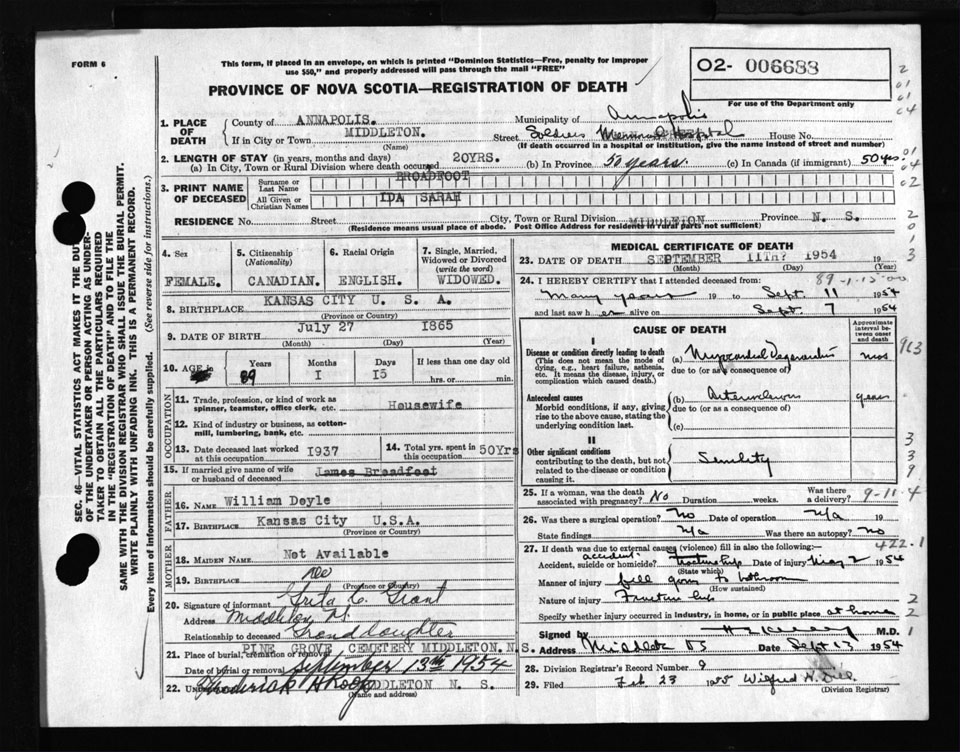 FORM 6
This form, if placed in an envelope, on which is printed "Dominion Statistics—Free, penalty for improper
use $50," and properly addressed will pass through the mail "FREE"
PROVINCE OF NOVA SCOTIA—REGISTRATION OF DEATH
O2- 006688
For use of the Department only
1. PLACE OF DEATH
County of ANNAPOLIS. Municipality of Annapolis
If in City or Town MIDDLETON. Street Soldiers Memorial Hospital House No.
(Name) (If death occurred in a hospital or institution, give the name instead of street and number)
2. LENGTH OF STAY (in years, months and days)
(a) In City, Town or Rural Division where death occurred 20YRS. (b) In Province 50 years. (c) In Canada (if immigrant) 50 yrs.
3. PRINT NAME OF DECEASED
Surname or Last Name BROADFOOT
All Given or Christian Names IDA SARAH
RESIDENCE No. Street City, Town or Rural Division MIDDLETON Province N. S.
(Residence means usual place of abode. Post Office Address for residents in rural parts not sufficient)
4. Sex
FEMALE.
5. Citizenship (Nationality)
CANADIAN.
6. Racial Origin
ENGLISH.
7. Single, Married, Widowed or Divorced (write the word)
WIDOWED.
8. BIRTHPLACE KANSAS CITY U. S. A.
(Province or Country)
9. DATE OF BIRTH July 27 1865
(Month) (Day) (Year)
10. AGE Years Months Days If less than one day old
89 1 15 hrs. or min.
OCCUPATION
11. Trade, profession, or kind of work as
spinner, teamster, office clerk, etc. Housewife
12. Kind of industry or business, as cotton-
mill, lumbering, bank, etc.
13. Date deceased last worked at this occupation 1937
14. Total yrs. spent in this occupation 50Yrs
15. If married give name of wife or husband of deceased James Broadfoot
FATHER
16. Name William Doyle
17. Birthplace Kansas City U.S.A.
(Province or Country)
MOTHER
18. MAIDEN NAME Not Available
19. BIRTHPLACE
(Province or Country)
20. Signature of informant Grant
Address Middleton
Relationship to deceased Granddaughter
21. Place of burial, cremation or removal PINE GROVE CEMETERY MIDDLETON. N.S.
Date of burial or removal September 13th 1954
22. Roderick MIDDLETON N. S.
(Name and address)
MEDICAL CERTIFICATE OF DEATH
23. DATE OF DEATH SEPTEMBER 11TH? 1954 19
(Month) (Day) (Year)
24. I HEREBY CERTIFY that I attended deceased from: 89-1-15
many years 19 to Sept. 11 1954
and last saw her alive on Sept. 7 1954
CAUSE OF DEATH
Approximate interval between onset and death
I
Disease or condition directly leading to death
This does not mean the mode of
dying, e.g., heart failure, asthenia,
etc. It means the disease, injury, or
complication which caused death.
(a) Myocardial Degeneration mos
due to (or as consequence of)
Antecedent causes
Morbid conditions, if any, giving
rise to the above cause, stating the
underlying condition last.
(b) years
due to (or as a consequence of)
(c)
II
Other significant conditions
contributing to the death, but not
related to the disease or condition
causing it.
Senility
25. If a woman, was the death associated with pregnancy? No Duration weeks. Was there a delivery? 9-11
26. Was there a surgical operation? No Date of operation N/a 19
State findings N/a Was there an autopsy? no
422.1
27. If death was due to external causes (violence) fill in also the following:—
Accident, suicide or homicide? accident Date of injury May 2 1954
(State which)
Manner of injury fell going to bathroom
(How sustained)
Nature of injury Fracture hip
Specify whether injury occurred in industry, in home, or in public place at home
Signed by M.D.
Address Middleton NS Date Sept 13 1954
28. Division Registrar's Record Number 9
29. Filed Feb 23 1955 Wilfred
(Division Registrar)
SEC. 46—VITAL STATISTICS ACT MAKES IT THE DUTY
OF THE UNDERTAKER OR PERSON ACTING AS UNDER-
TAKER TO OBTAIN ALL THE PARTICULARS REQUIRED
IN THE "REGISTRATION OF DEATH" AND TO FILE THE
SAME WITH THE DIVISION REGISTRAR WHO SHALL ISSUE THE BURIAL PERMIT.
WRITE PLAINLY WITH UNFADING INK. THIS IS A PERMANENT RECORD.
Every item of information should be carefully supplied. (See reverse side for instructions.)